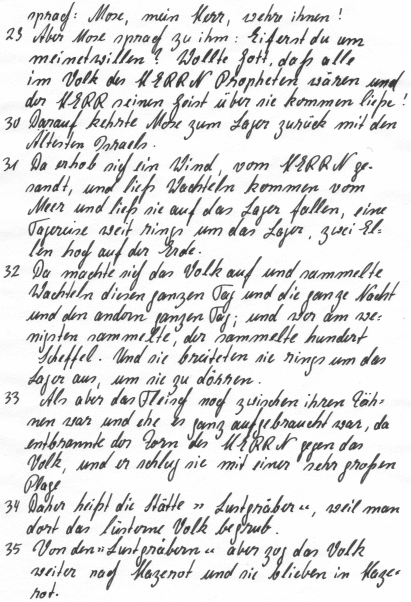 sprach: Mose, mein Herr, wehre ihnen!
29 Aber Mose sprach zu ihm: Eiferst du um
meinetwillen? Wollte Gott, daß alle
im Volk des HERRN Propheten wären und
der HERR seinen Geist über sie kommen ließe!
30 Darauf kehrte Mose zum Lager zurück mit den
Ältesten Israels.
31 Da erhob sich ein Wind, vom HERRN ge-
sandt, und ließ Wachteln kommen vom
Meer und ließ sie auf das Lager fallen, eine
Tagereise weit rings um das Lager, zwei El-
len hoch auf der Erde.
32 Da machte sich das Volk auf und sammelte
Wachteln diesen ganzen Tag und die ganze Nacht
und den andern ganzen Tag; und wer am we-
nigsten sammelte, der sammelte hundert
Scheffel. Und sie breiteten sie rings um das
Lager aus, um sie zu dörren.
33 Als aber das Fleisch noch zwischen ihren Zäh-
nen war und ehe es ganz aufgebraucht war, da
entbrannte der Zorn des HERRN gegen das
Volk, und er schlug sie mit einer sehr großen
Plage
34 Daher heißt die Stätte » Lustgräber «, weil man
dort das lüsterne Volk begrub.
35 Von den » Lustgräbern « aber zog das Volk
weiter nach Hazerot und sie blieben in Haze-
rot.